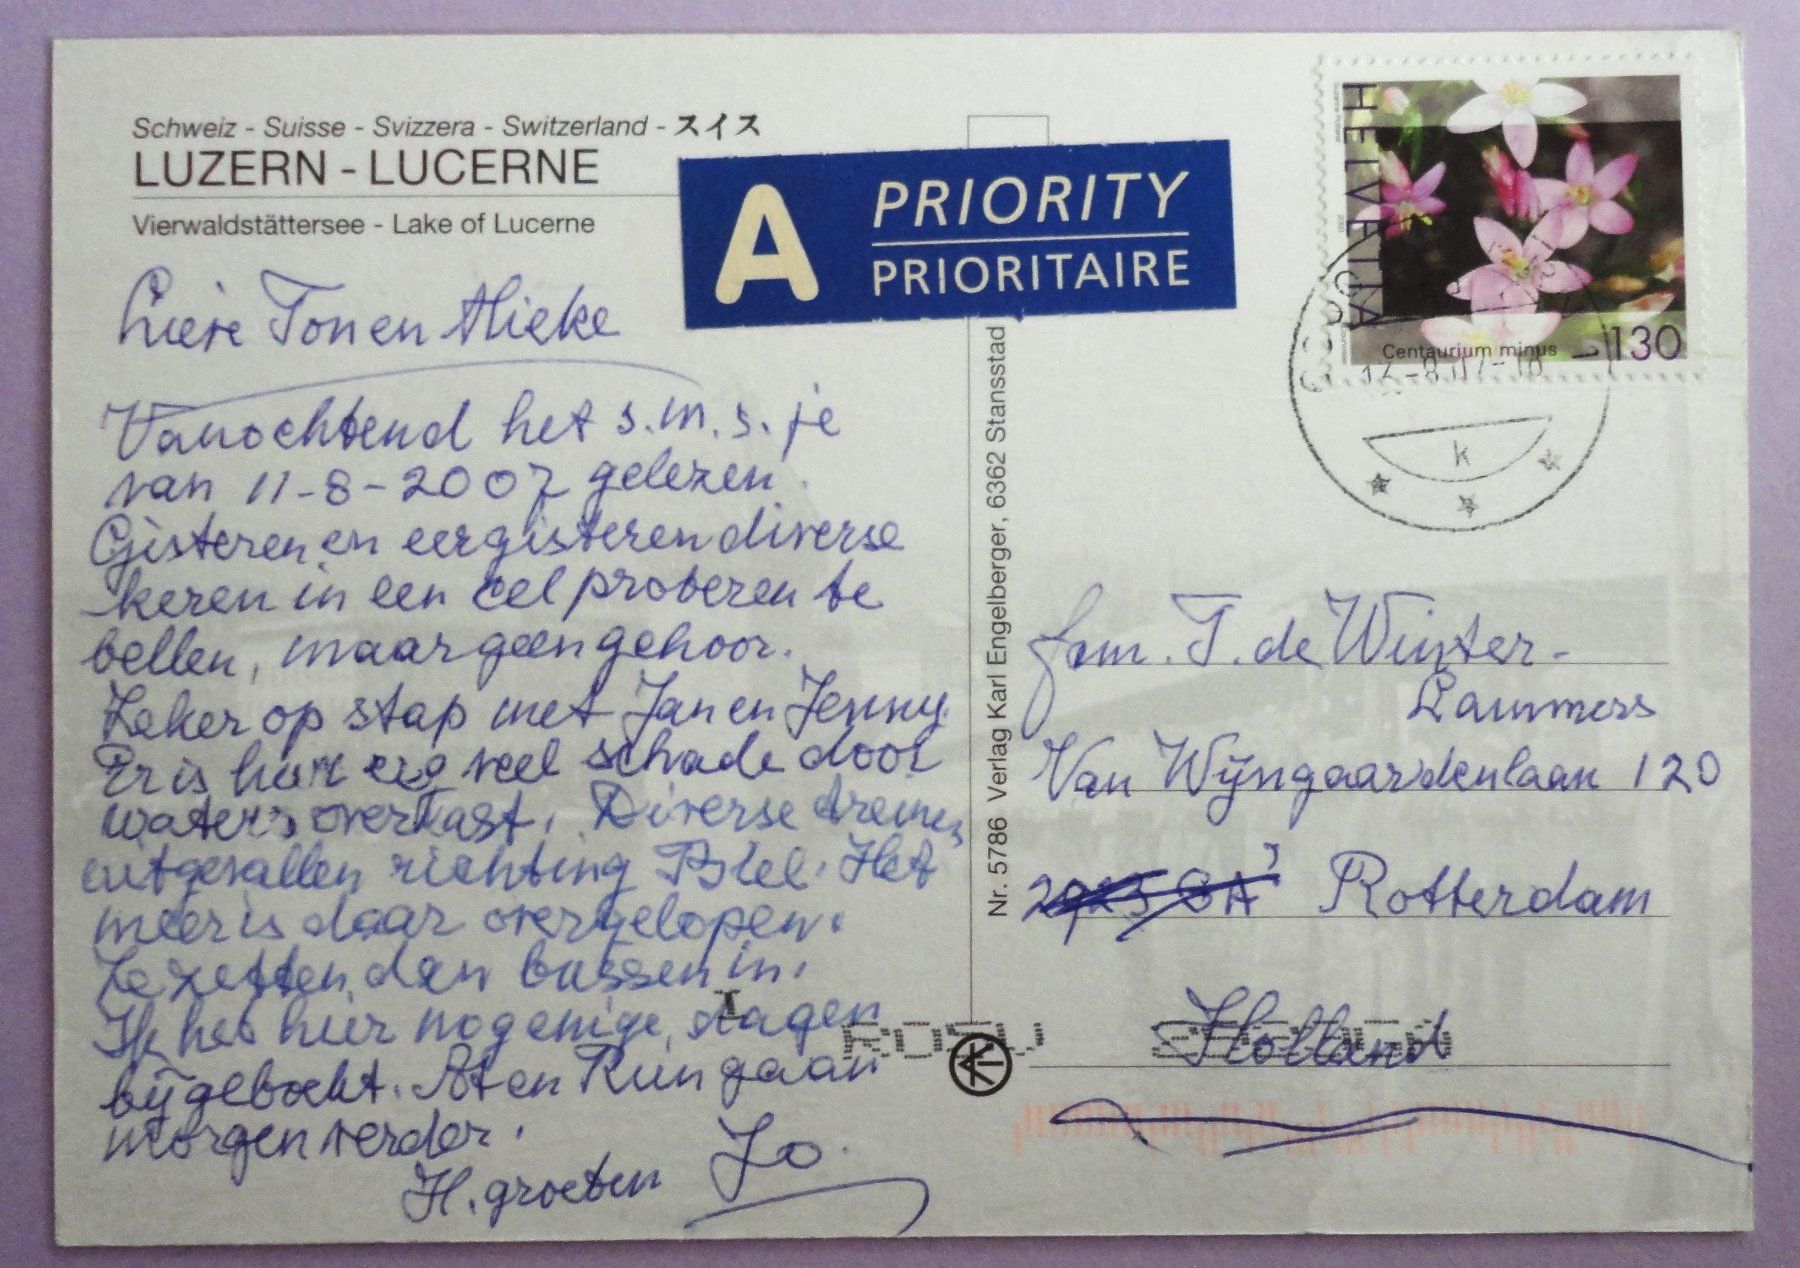 Schweiz - Suisse - Svizzera - Switzerland - スイス
LUZERN - LUCERNE
Vierwaldstättersee - Lake of Lucerne
A PRIORITY
PRIORITAIRE
HELVETIA
Centaurium minus
130
k
Lieve Ton en Mieke
Vanochtend het s.m.s.je
van 11-8-2007 gelezen.
Gisteren en eergisteren diverse
keren in een cel proberen te
bellen, maar geen gehoor.
Zeker op stap met Jan en Jenny.
Er is hier erg veel schade door
water, overlast. Diverse treinen
uitgevallen richting Biel. Het
meer is daar overgelopen.
Ze zetten dan bussen in.
Ik heb hier nog enige dagen
bijgeboekt. At en Run gaan
morgen verder.
H. groeten Jo.
Nr. 5786 Verlag Karl Engelberger, 6362 Stansstad
fam. T. de Winter-
Lammers
Van Wijngaardenlaan 120
Rotterdam
Holland